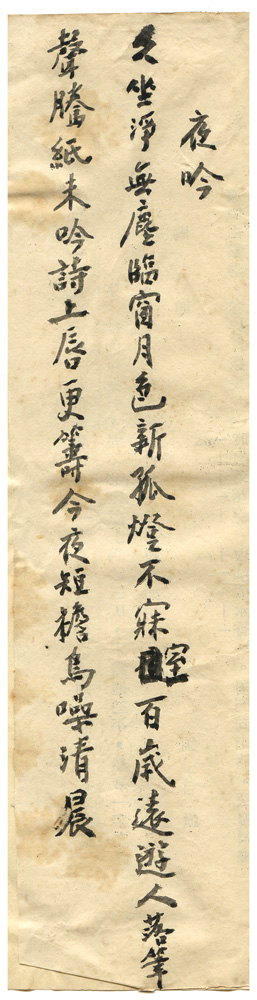 夜吟
久坐淨無塵臨窗月色新孤燈不寐室百歲遠遊人落筆
聲騰紙未吟詩上唇更籌今夜短檐鳥噪清晨